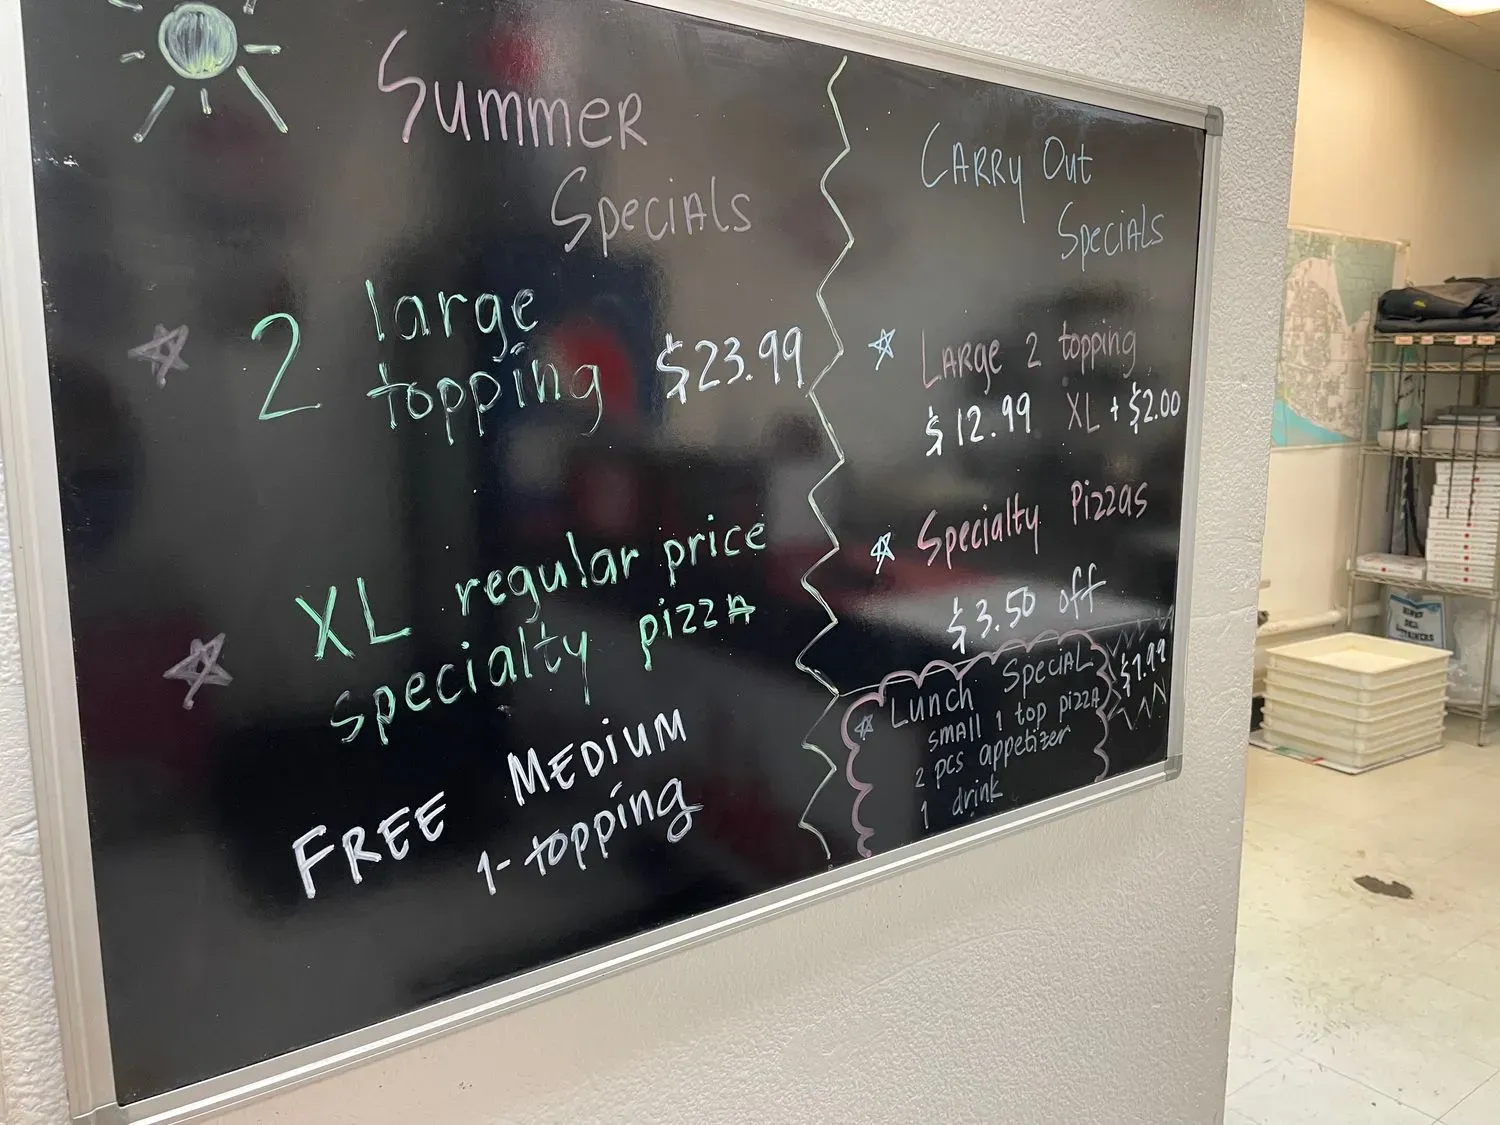 Summer
Specials
2 large
topping $23.99
XL regular price
specialty pizza
FREE MEDIUM
1-topping
CARRY Out
Specials
LARge 2 topping
$12.99 XL + $2.00
Specialty Pizzas
$3.50 off
Lunch Special
small 1 top pizza
2 pcs appetizer
1 drink